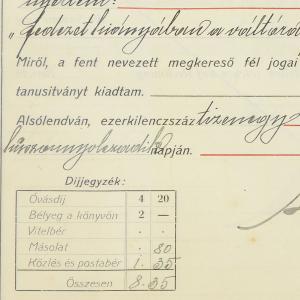 "fedezet hiányában a váltóra
Miről, a fent nevezett megkereső fél jogai
tanusítványt kiadtam.
Alsólendván, ezerkilenczszáz tizenegy
huszonnyolczadik napján.
Díjjegyzék:
Óvásdíj 4 20
Bélyeg a könyvön 2 —
Vitelbér . .
Másolat . 80
Közlés és postabér 1. 35
Összesen 8. 35